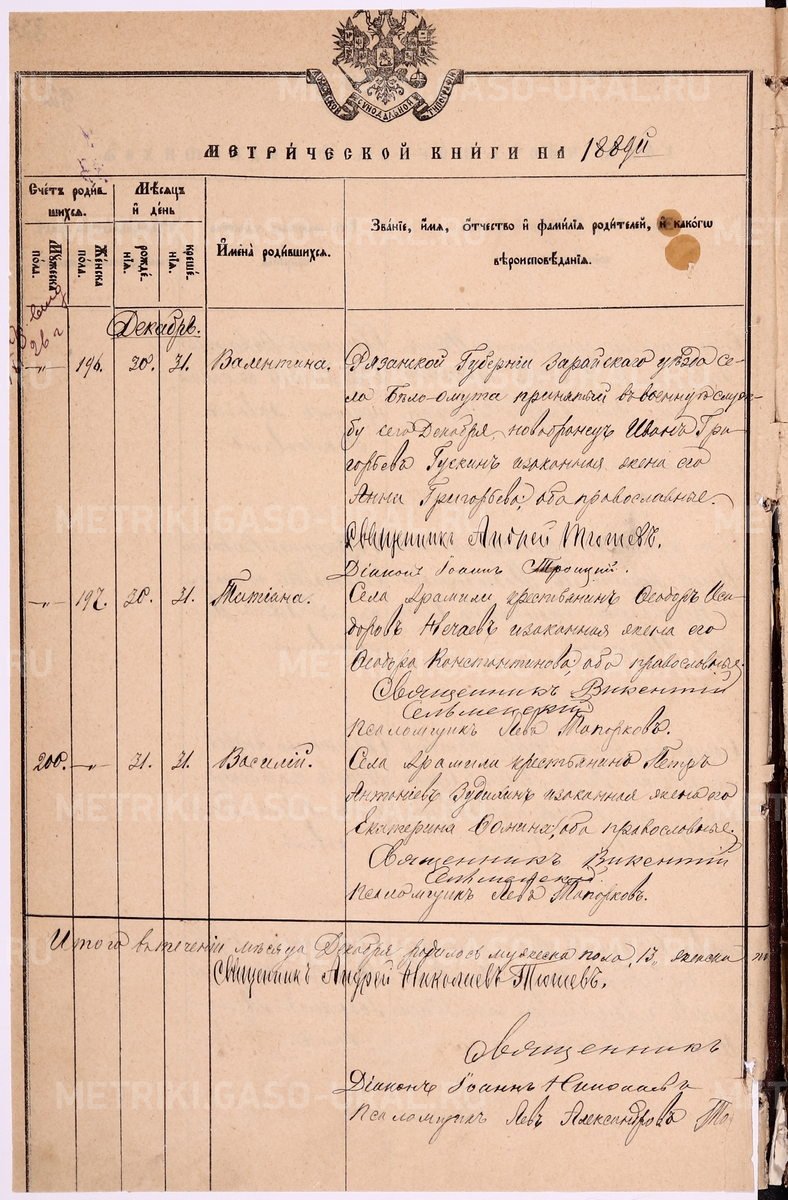 МОСКОВСКОЙ СѴНОДАЛЬНОЙ ТИПОГРАФІИ
МЕТРИ́ЧЕСКОЙ КНИ́ГИ НА 1889й
Сче́тъ роди́в
шихся.
Мѣсяцъ
и де́нь
Имена̀ роди́вшихся.
Зва́нїе, и́мя, о́тчество и фами́лїя роди́телей, и како́гѡ
вѣроисповѣ́данїя.
Му́жеска
по́ла.
Же́нска
по́ла.
рожде́
нїя.
креще́
нїя.
Декабрь.
-„- 196. 30. 31. Валентина. Рязанской Губерніи Зарайскаго уѣзда се-
ла Бѣло-омута принятый въ военную служ-
бу сего Декабря, новобранецъ Иванъ Гри-
горьевъ Гускинъ и законная жена его
Анна Григорьева, оба православные.
Священникъ Андрей Тюшевъ.
Діаконъ Іоаннъ Троицкій.
-„- 197. 30. 31. Татіана. Села Арамили крестьянинъ Ѳеодоръ Иси-
доровъ Нечаевъ и законная жена его
Ѳеодора Константинова, оба православные.
Священникъ Викентій
Сельменскій
Псаломщикъ Левъ Топорковъ.
200. -„- 31. 31. Василій. Села Арамили крестьянинъ Петръ
Антоніевъ Зудилинъ и законная жена его
Екатерина Ѳомина, оба православные.
Священникъ Викентій
Сельменскій.
Псаломщикъ Левъ Топорковъ.
Итого въ теченіи мѣсяца Декабря родилось мужеска пола 13, женска
Священникъ Андрей Николаевъ Тюшевъ.
Священникъ
Діаконъ Іоаннъ Николаевъ
Псаломщикъ Левъ Александровъ То
METRIKI.GASO-URAL.RU